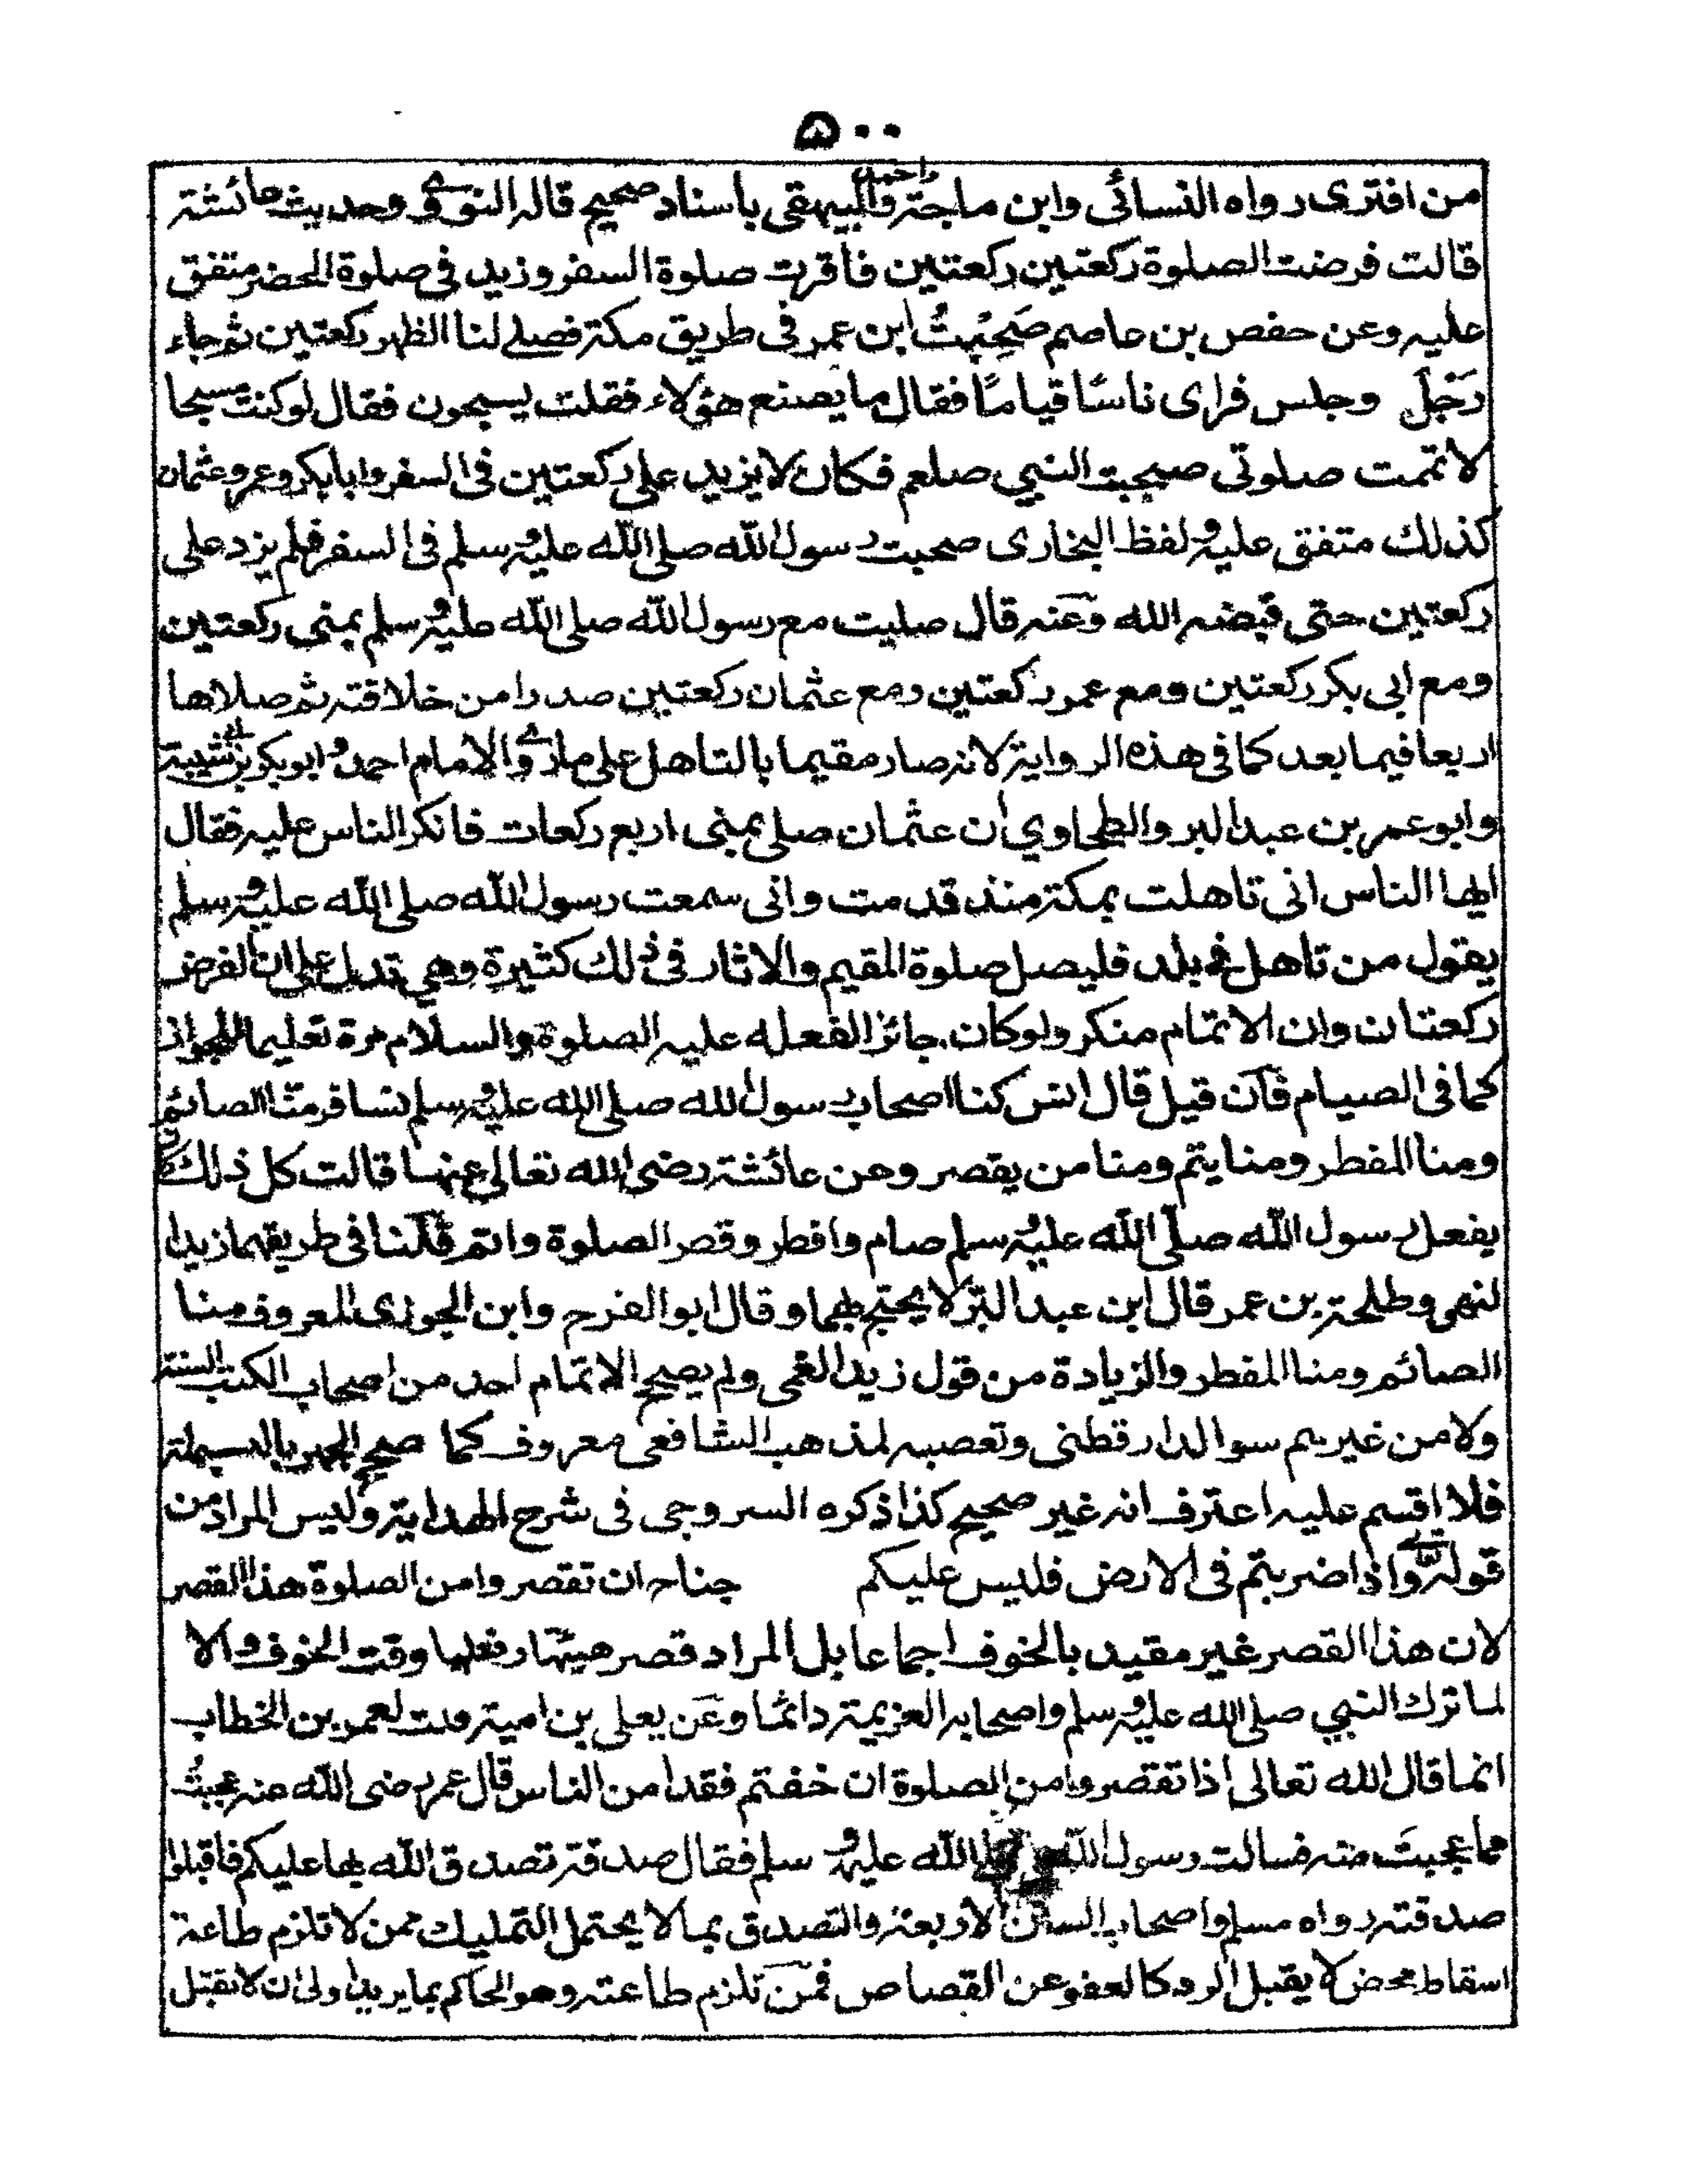 ۵۰۰
من افترى رواه النسائى وابن ماجة واحمد والبيهقى باسناد صحيح قاله النووے وحديث عائشة
قالت فرضت الصلوة ركعتين ركعتين فاقرت صلوة السفر وزيد فى صلوة الحضر متفق
عليه وعن حفص بن عاصم صَحِبْتُ ابن عمر فى طريق مكة فصلے لنا الظهر ركعتين ثم جاء
رَحْلَ وجلس فراى ناسًا قيامًا فقال ما يصنع هؤلاء فقلت يسبحون فقال لو كنت مسبحا
لاتممت صلوتى صحبت النبي صلعم فكان لا يزيد على ركعتين فى السفر وابابكر وعمر وعثمان
كذلك متفق عليه ولفظ البخارى صحبت رسول الله صلى الله عليه وسلم فى السفر فلم يزد على
ركعتين حتى قبضه الله وعنه قال صليت مع رسول الله صلى الله عليه وسلم بمنى ركعتين
ومع ابى بكر ركعتين ومع عمر ركعتين ومع عثمان ركعتين صدرا من خلافته ثم صلاها
اربعا فيما بعد كما فى هذه الرواية لانه صار مقيما بالتاهل على ما روے الامام احمد وابوبكر بن ابے شيبة
وابو عمر بن عبد البر والطحاوي ان عثمان صلى بمنى اربع ركعات فانكر الناس عليه فقال
ايها الناس انى تاهلت بمكة منذ قدمت وانى سمعت رسول الله صلى الله عليه وسلم
يقول من تاهل فى بلد فليصل صلوة المقيم والاثار فى ذلك كثيرة وهي تدل على ان الفرض
ركعتان وان الاتمام منكر ولو كان جائزا لفعله عليه الصلوة والسلام مرة تعليما للجواز
كما فى الصيام فآن قيل قال انس كنا اصحاب رسول الله صلى الله عليه وسلم نسافر منا الصائم
ومنا المفطر ومنا يتم ومنا من يقصر وعن عائشة رضى الله تعالى عنها قالت كل ذلك كان
يفعل رسول الله صلّى الله عليه وسلم صام وافطر وقصر الصلوة واتم قلنا فى طريقهما زيد
لنهى وطلحة بن عمر قال ابن عبد البرّ لا يحتج بهما وقال ابو الفرج وابن الجوزى المعروف منا
الصائم ومنا المفطر والزيادة من قول زيد العمى ولم يصح الاتمام احد من اصحاب الكتب الستة
ولا من غيرهم سوا الدارقطنى وتعصبه لمذهب الشافعى معروف كما صحح الجهر بالبسملة
فلا اقسم عليه اعترف انه غير صحيح كذا ذكره السروجى فى شرح الهداية وليس المراد من
قوله تعالے واذا ضربتم فى الارض فليس عليكم جناح ان تقصروا من الصلوة هذا القصر
لان هذا القصر غير مقيد بالخوف اجماعا بل المراد قصر هيئتها وفعلها وقت الخوف والا
لما ترك النبي صلى الله عليه وسلم واصحابه العزيمة دائما وعن يعلى بن امية قلت لعمر بن الخطاب
انما قال الله تعالى اذا تقصروا من الصلوة ان خفتم فقد امن الناس قال عمر رضى الله عنه عجبتُ
مما عجبتَ منه فسالت رسول الله صلى الله عليه وسلم فقال صدقة تصدق الله بها عليكم فاقبلوا
صدقته رواه مسلم واصحاب السنن الاربعة والتصدق بما لا يحتمل التمليك ممن لا تلزم طاعة
اسقاط محض لا يقبل الرد كالعفو عن القصاص فمن تلزم طاعته وهو الحاكم بما يريد اولى ان لا نقبل